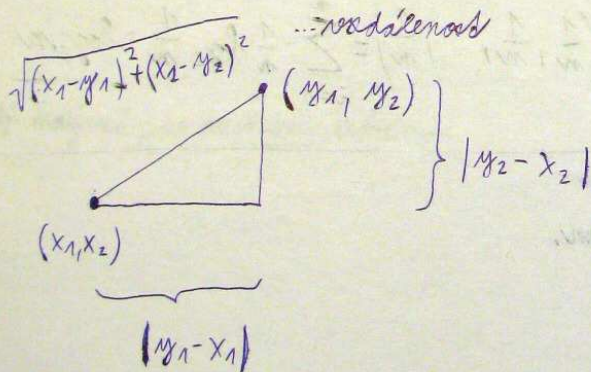 √((x₁-y₁)²+(x₁-y₂)²) ...vzdálenost
(y₁, y₂)
|y₂-x₂|
(x₁,x₂)
|y₁-x₁|